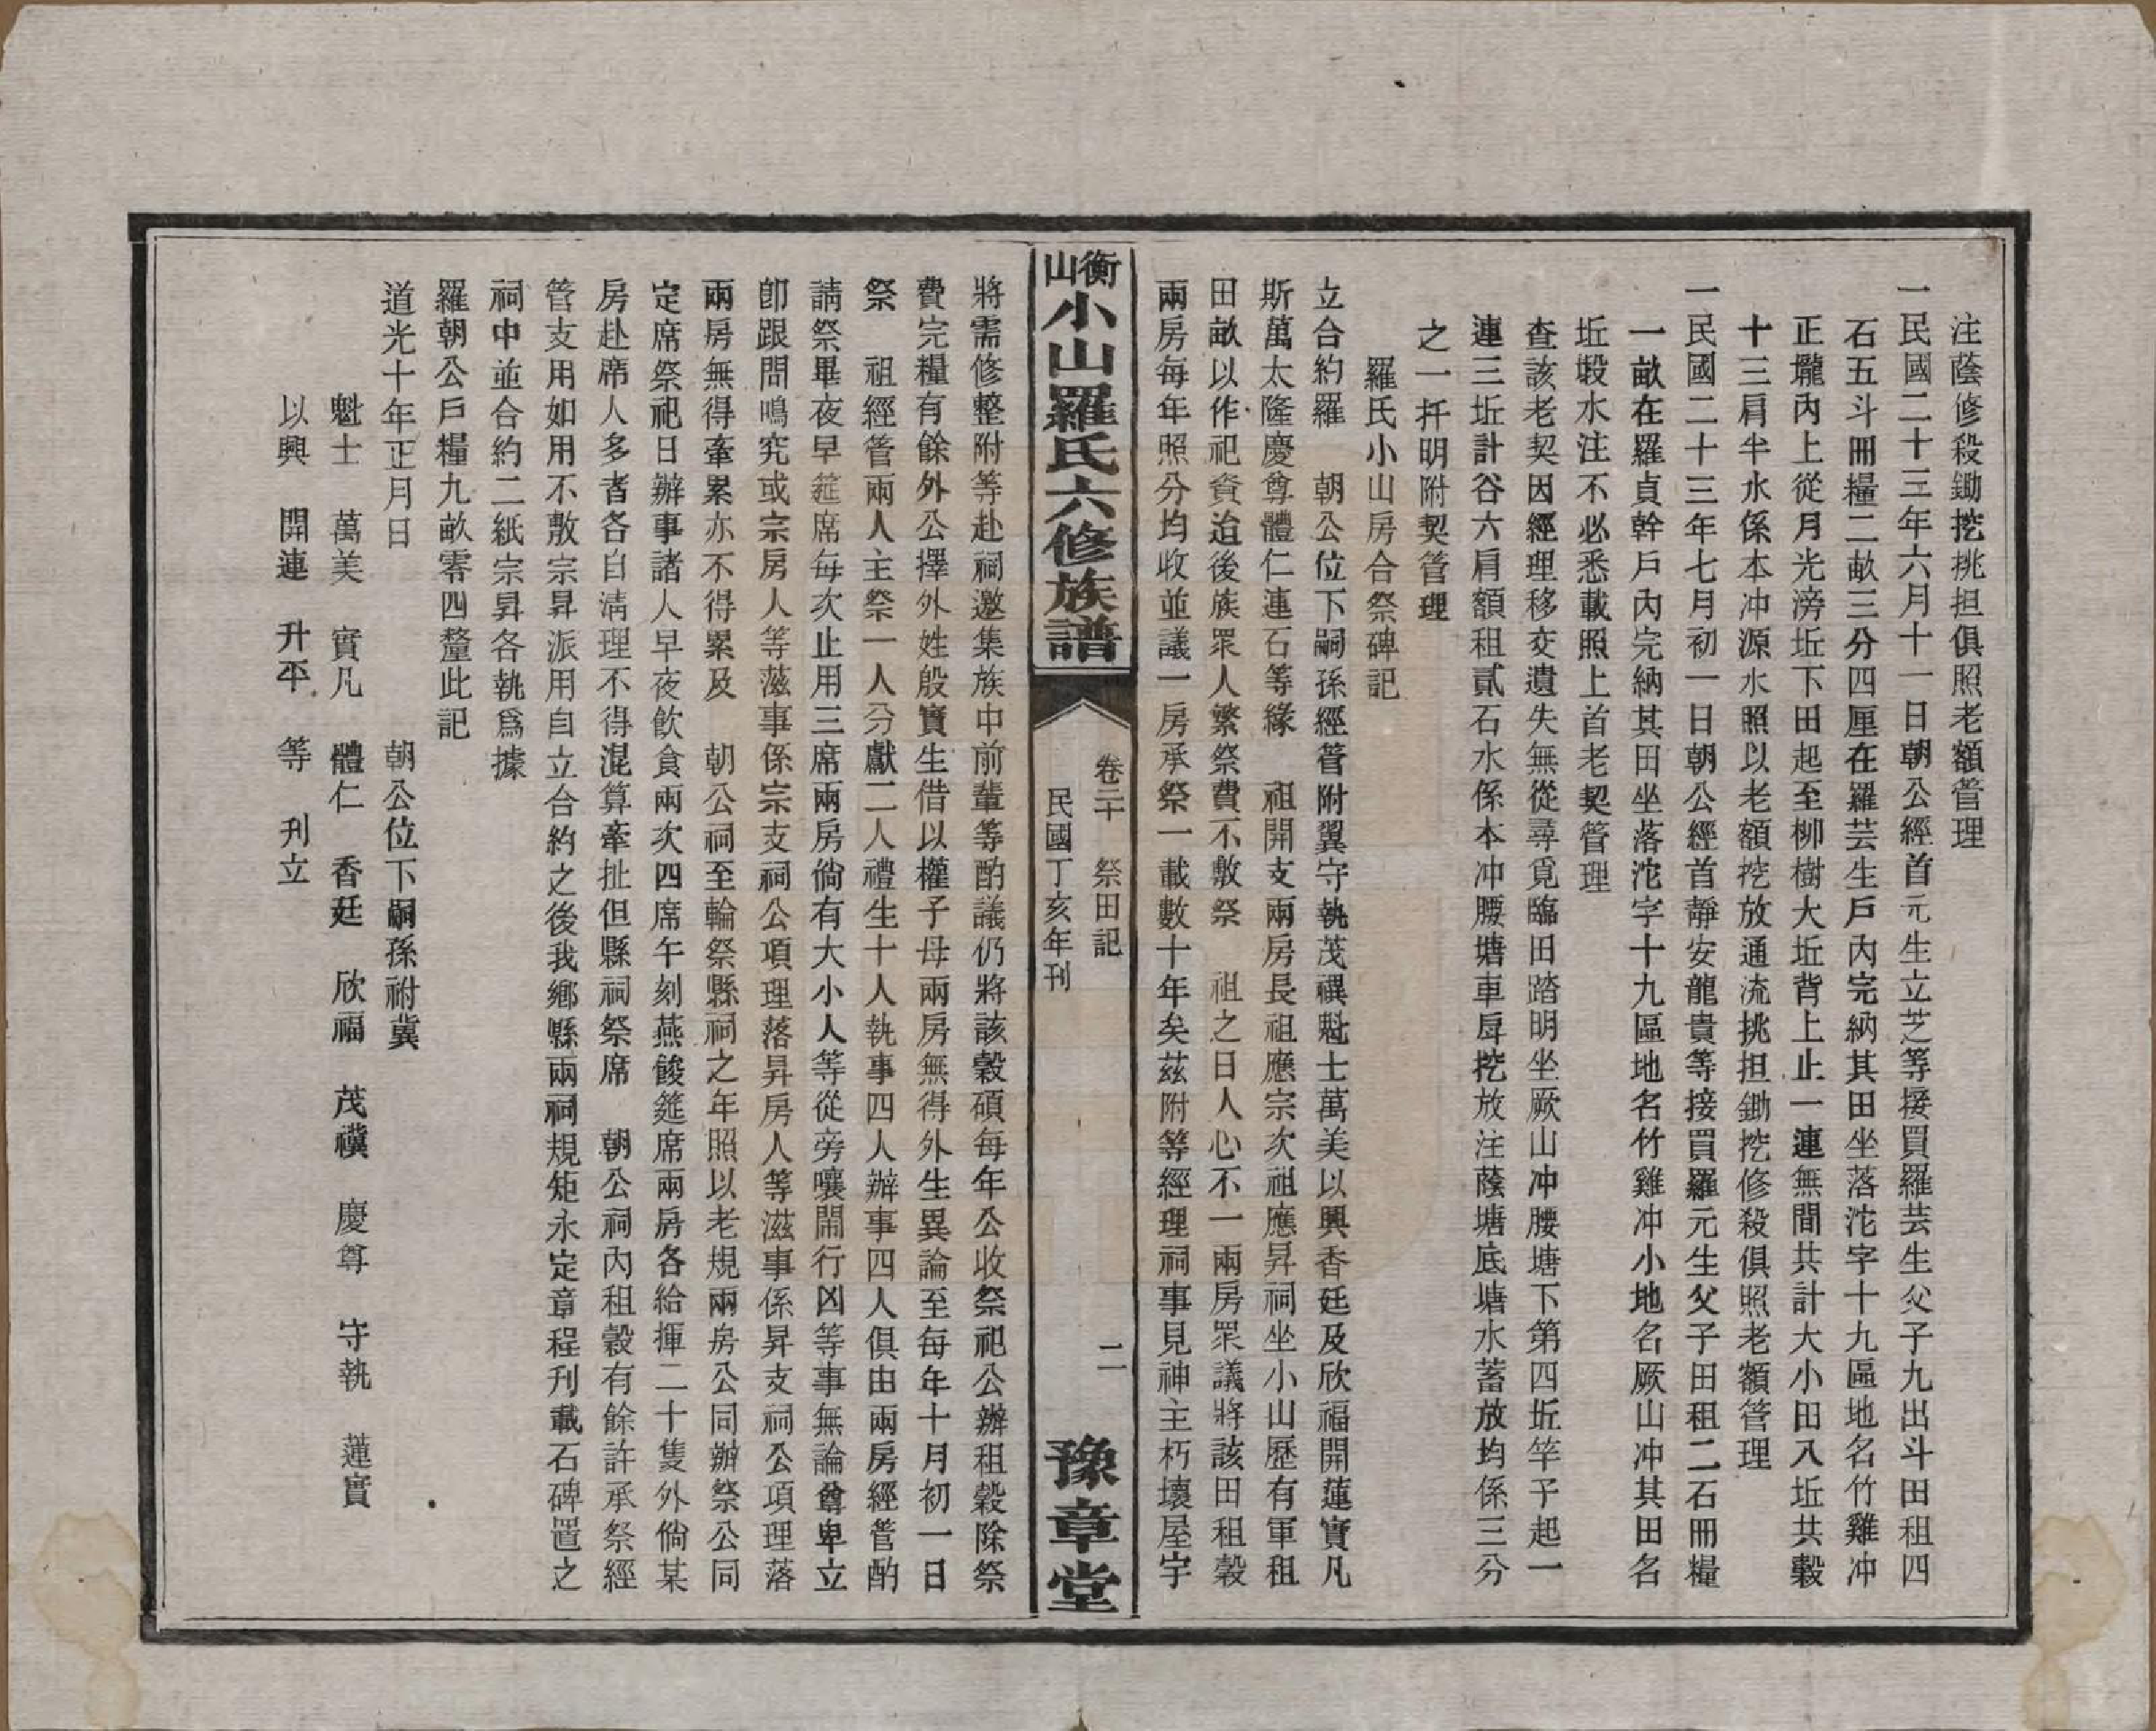 注蔭修殺鋤挖挑担俱照老額管理
一民國二十三年六月十一日朝公經首元生立芝等接買羅芸生父子九出斗田租四
石五斗冊糧二畝三分四厘在羅芸生戶內完納其田坐落沱字十九區地名竹雞冲
正壠內上從月光滂坵下田起至柳樹大坵背上止一連無間共計大小田入坵共穀
十三肩半水係本冲源水照以老額挖放通流挑担鋤挖修殺俱照老額管理
一民國二十三年七月初一日朝公經首靜安龍貴等接買羅元生父子田租二石冊糧
一畝在羅貞幹戶內完納其田坐落沱字十九區地名竹雞冲小地名厥山冲其田名
坵塅水注不必悉載照上首老契管理
查該老契因經理移交遺失無從尋覓臨田踏明坐厥山冲腰塘下第四坵竿予起一
連三坵計谷六肩額租貳石水係本冲腰塘車戽挖放注蔭塘底塘水蓄放均係三分
之一扦明附契管理
羅氏小山房合祭碑記
立合約羅　朝公位下嗣孫經管附翼守執茂禩魁士萬美以興香廷及欣福開蓮實凡
斯萬太隆慶尊體仁連石等緣　祖開支兩房長祖應宗次祖應昇祠坐小山歷有軍租
田畝以作祀資迨後族眾人繁祭費不敷祭　祖之日人心不一兩房眾議將該田租穀
兩房每年照分均收並議一房承祭一載數十年矣茲附等經理祠事見神主朽壞屋宇
衡山小山羅氏六修族譜
卷二十　祭田記　二
民國丁亥年刊
豫章堂
將需修整附等赴祠邀集族中前輩等酌議仍將該穀碩每年公收祭祀公辦租穀除祭
費完糧有餘外公擇外姓殷實生借以權子母兩房無得外生異論至每年十月初一日
祭　祖經管兩人主祭一人分獻二人禮生十人執事四人辦事四人俱由兩房經管酌
請祭畢夜早筵席每次止用三席兩房倘有大小人等從旁嚷鬧行凶等事無論尊卑立
卽跟問鳴究或宗房人等滋事係宗支祠公項理落昇房人等滋事係昇支祠公項理落
兩房無得牽累亦不得累及　朝公祠至輪祭縣祠之年照以老規兩房公同辦祭公同
定席祭祀日辦事諸人早夜飲食兩次四席午刻燕餕筵席兩房各給揮二十隻外倘某
房赴席人多者各自淸理不得混算牽扯但縣祠祭席　朝公祠內租穀有餘許承祭經
管支用如用不敷宗昇派用自立合約之後我鄉縣兩祠規矩永定章程刊載石碑置之
祠中並合約二紙宗昇各執爲據
羅朝公戶糧九畝零四釐此記
道光十年正月日　朝公位下嗣孫祔冀
魁士　萬美　實凡　體仁　香廷　欣福　茂禩　慶尊　守執　蓮實
以興　開連　升平　等　刋立